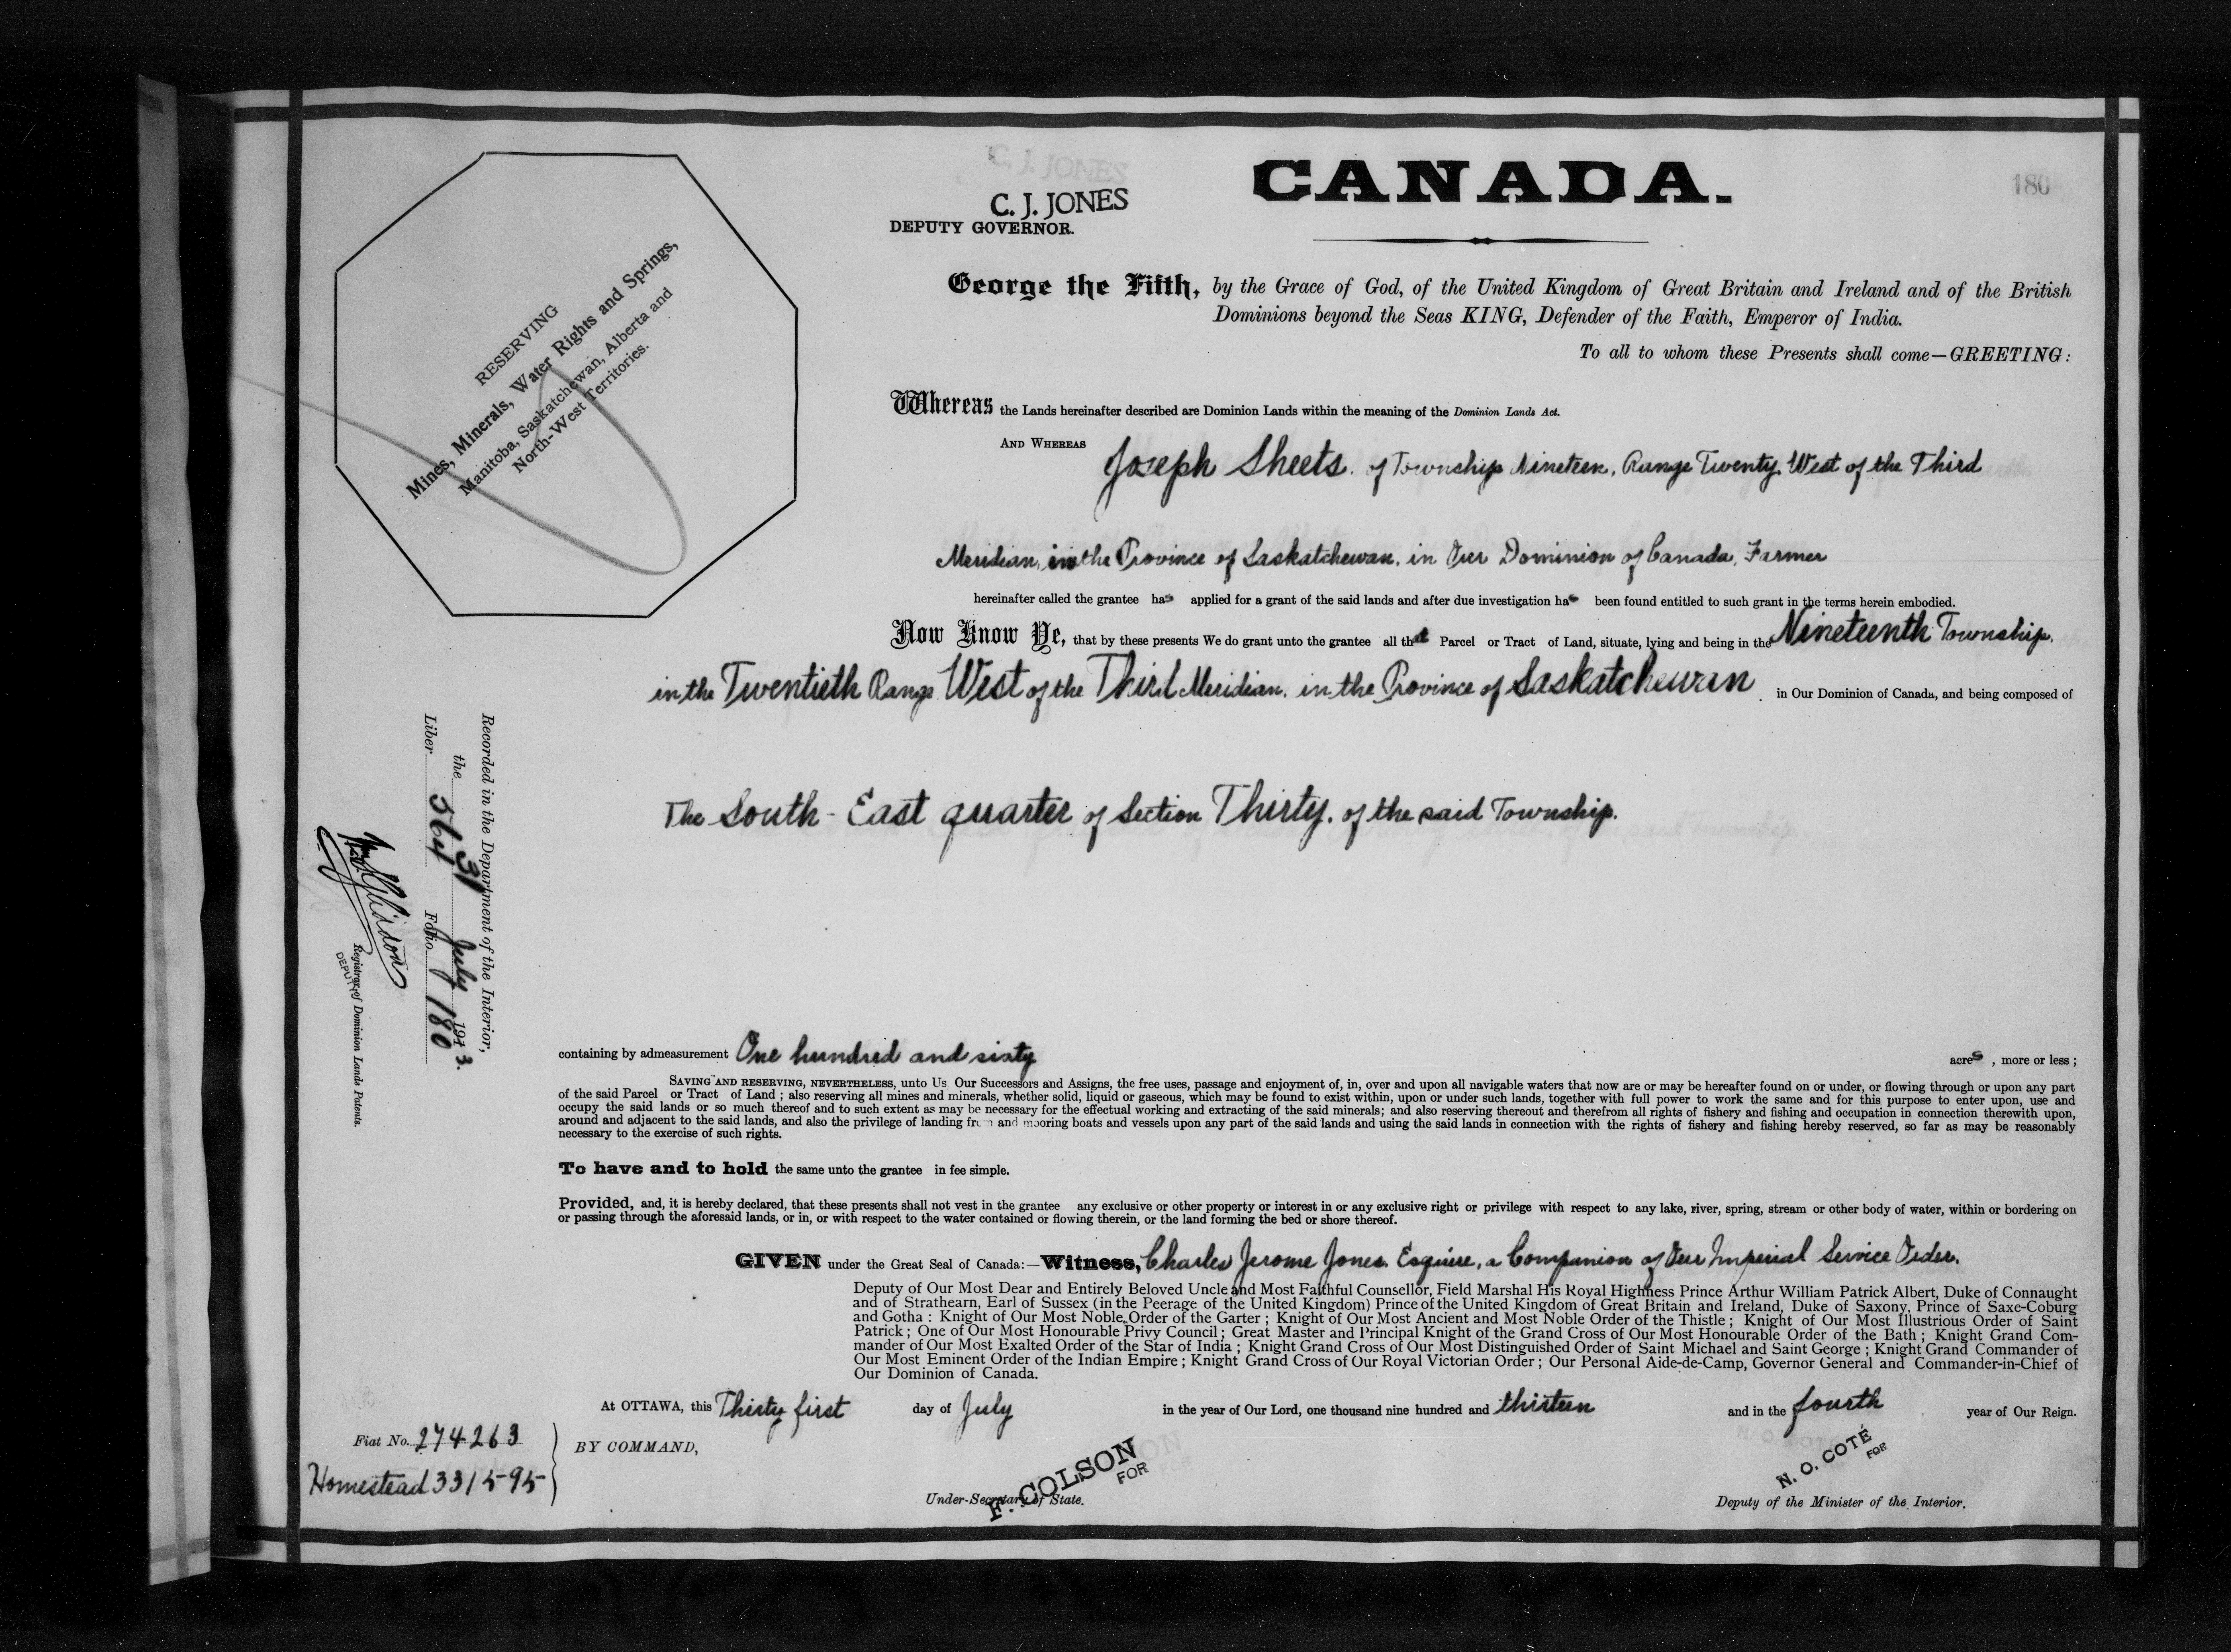 C. J. JONES
DEPUTY GOVERNOR.
CANADA.
180
RESERVING
Mines, Minerals, Water Rights and Springs,
Manitoba, Saskatchewan, Alberta and
North-West Territories.
George the Fifth, by the Grace of God, of the United Kingdom of Great Britain and Ireland and of the British
Dominions beyond the Seas KING, Defender of the Faith, Emperor of India.
To all to whom these Presents shall come—GREETING:
Whereas the Lands hereinafter described are Dominion Lands within the meaning of the Dominion Lands Act.
AND WHEREAS Joseph Sheets. of Township Nineteen, Range Twenty, West of the Third
Meridian, in the Province of Saskatchewan, in Our Dominion of Canada, Farmer
hereinafter called the grantee has applied for a grant of the said lands and after due investigation has been found entitled to such grant in the terms herein embodied.
Now Know Ye, that by these presents We do grant unto the grantee all that Parcel or Tract of Land, situate, lying and being in the Nineteenth Township,
in the Twentieth Range West of the Third Meridian, in the Province of Saskatchewan in Our Dominion of Canada, and being composed of
The South-East quarter of Section Thirty, of the said Township.
Recorded in the Department of the Interior,
the 31 July 1913.
Liber 564 Folio 180
Registrar of Dominion Lands Patents.
DEPUTY
containing by admeasurement One hundred and sixty acres, more or less;
SAVING AND RESERVING, NEVERTHELESS, unto Us, Our Successors and Assigns, the free uses, passage and enjoyment of, in, over and upon all navigable waters that now are or may be hereafter found on or under, or flowing through or upon any part
of the said Parcel or Tract of Land; also reserving all mines and minerals, whether solid, liquid or gaseous, which may be found to exist within, upon or under such lands, together with full power to work the same and for this purpose to enter upon, use and
occupy the said lands or so much thereof and to such extent as may be necessary for the effectual working and extracting of the said minerals; and also reserving thereout and therefrom all rights of fishery and fishing and occupation in connection therewith upon,
around and adjacent to the said lands, and also the privilege of landing from and mooring boats and vessels upon any part of the said lands and using the said lands in connection with the rights of fishery and fishing hereby reserved, so far as may be reasonably
necessary to the exercise of such rights.
To have and to hold the same unto the grantee in fee simple.
Provided, and, it is hereby declared, that these presents shall not vest in the grantee any exclusive or other property or interest in or any exclusive right or privilege with respect to any lake, river, spring, stream or other body of water, within or bordering on
or passing through the aforesaid lands, or in, or with respect to the water contained or flowing therein, or the land forming the bed or shore thereof.
GIVEN under the Great Seal of Canada:—Witness, Charles Jerome Jones, Esquire, a Companion of Our Imperial Service Order,
Deputy of Our Most Dear and Entirely Beloved Uncle and Most Faithful Counsellor, Field Marshal His Royal Highness Prince Arthur William Patrick Albert, Duke of Connaught
and of Strathearn, Earl of Sussex (in the Peerage of the United Kingdom) Prince of the United Kingdom of Great Britain and Ireland, Duke of Saxony, Prince of Saxe-Coburg
and Gotha: Knight of Our Most Noble Order of the Garter; Knight of Our Most Ancient and Most Noble Order of the Thistle; Knight of Our Most Illustrious Order of Saint
Patrick; One of Our Most Honourable Privy Council; Great Master and Principal Knight of the Grand Cross of Our Most Honourable Order of the Bath; Knight Grand Com-
mander of Our Most Exalted Order of the Star of India; Knight Grand Cross of Our Most Distinguished Order of Saint Michael and Saint George; Knight Grand Commander of
Our Most Eminent Order of the Indian Empire; Knight Grand Cross of Our Royal Victorian Order; Our Personal Aide-de-Camp, Governor General and Commander-in-Chief of
Our Dominion of Canada.
At OTTAWA, this Thirty first day of July in the year of Our Lord, one thousand nine hundred and thirteen and in the fourth year of Our Reign.
Fiat No. 274263
Homestead 331595
BY COMMAND,
F. COLSON
FOR
Under-Secretary of State.
N. O. COTÉ
FOR
Deputy of the Minister of the Interior.